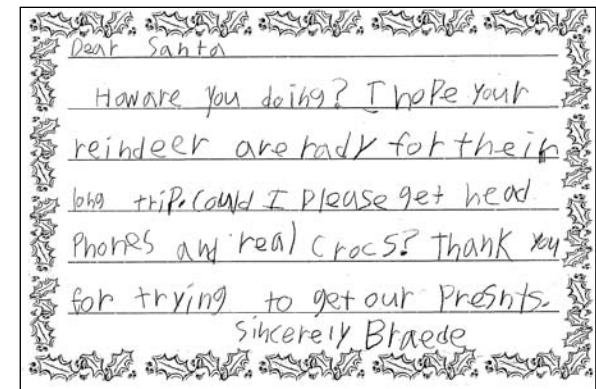 Dear Santa
How are you doing? I hope your
reindeer are rady for their
long trip. Could I please get head
Phones and real Crocs? Thank you
for trying to get our Presnts.
Sincerely Braede